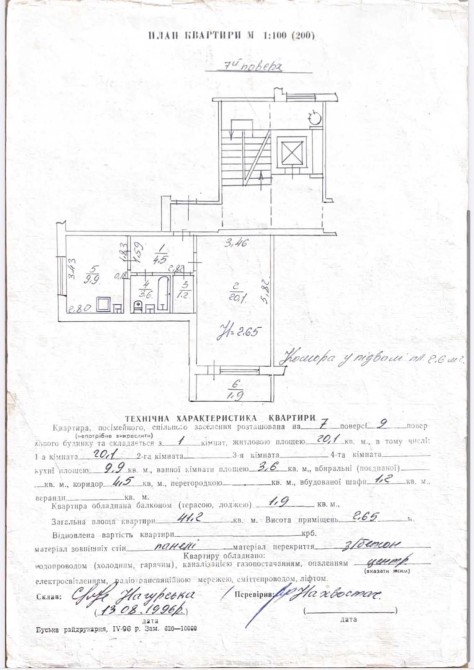 ПЛАН КВАРТИРИ М 1:100 (200)
7й поверх
3,46
1,83
1,59
1
4,5
3,43
5
9,9
2,82
4
3,6
3
1,2
2
20,1
5,82
2,80
Н=2.65
Комора у підвалі пл 2,6 м²
6
1,9
ТЕХНІЧНА ХАРАКТЕРИСТИКА КВАРТИРИ
Квартира, посімейного, спільного заселення розташована на 7 поверсі 9 повер-
(непотрібне викреслити)
хового будинку та складається з 1 кімнат, житловою площею 20,1 кв. м., в тому числі:
1-а кімната 20,1 2-га кімната 3-я кімната 4-та кімната
кухні площею 9,9 кв. м., ванної кімнати площею 3,6 кв. м., вбиральні (поєднаної)
кв. м., коридор 4,5 кв. м., перегородкою кв. м., вбудованої шафи 1,2 кв. м.,
веранди кв. м.
Квартира обладнана балконом (терасою, лоджею) 1,9 кв. м.,
Загальна площа квартири 41.2 кв. м. Висота приміщень 2.65 м.
Відновлена вартість квартири крб.
матеріал зовнішніх стін панелі матеріал перекриття з/бетон
Квартиру обладнано:
водопроводом (холодним, гарячим), каналізацією газопостачанням, опаленням центр
(вказати яким)
електроосвітленням, радіотрансляційною мережею, сміттєпроводом, ліфтом.
Склав: Нагурська Перевірив:
(13.08.1996р.) ( )
дата дата
Буська райдрукарня, IV-96 р. Зам. 620—10000